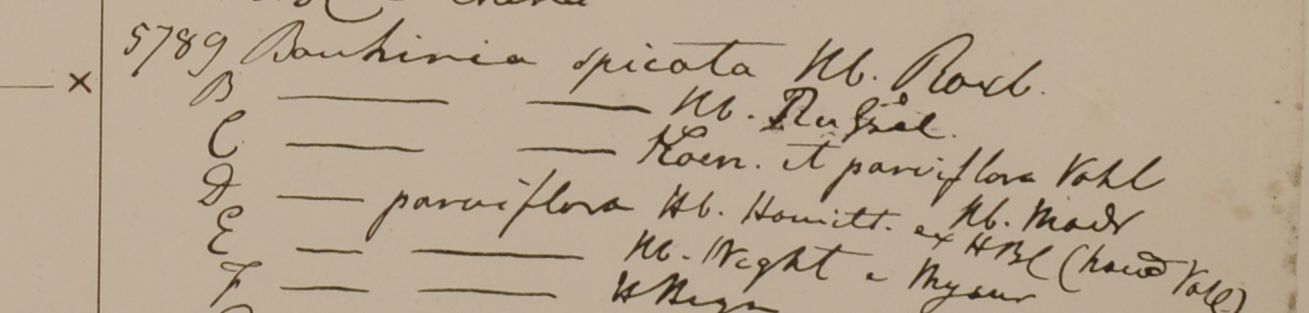 5789 Bauhinia spicata Hb. Roxb.
B — — Hb. Russel
C — — Koen. et parviflora Vahl
D — parviflora Hb. Hamilt. ex Hb. Madr
E — — Hb. Wight e HBC (haud Vahl)
F — — H